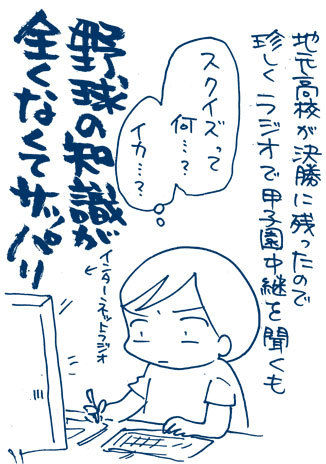 地元高校が決勝に残ったので
珍しくラジオで甲子園中継を聞くも
スクイズって
何…?
イカ…?
野球の知識が
全くなくてサッパリ
インターネットラジオ